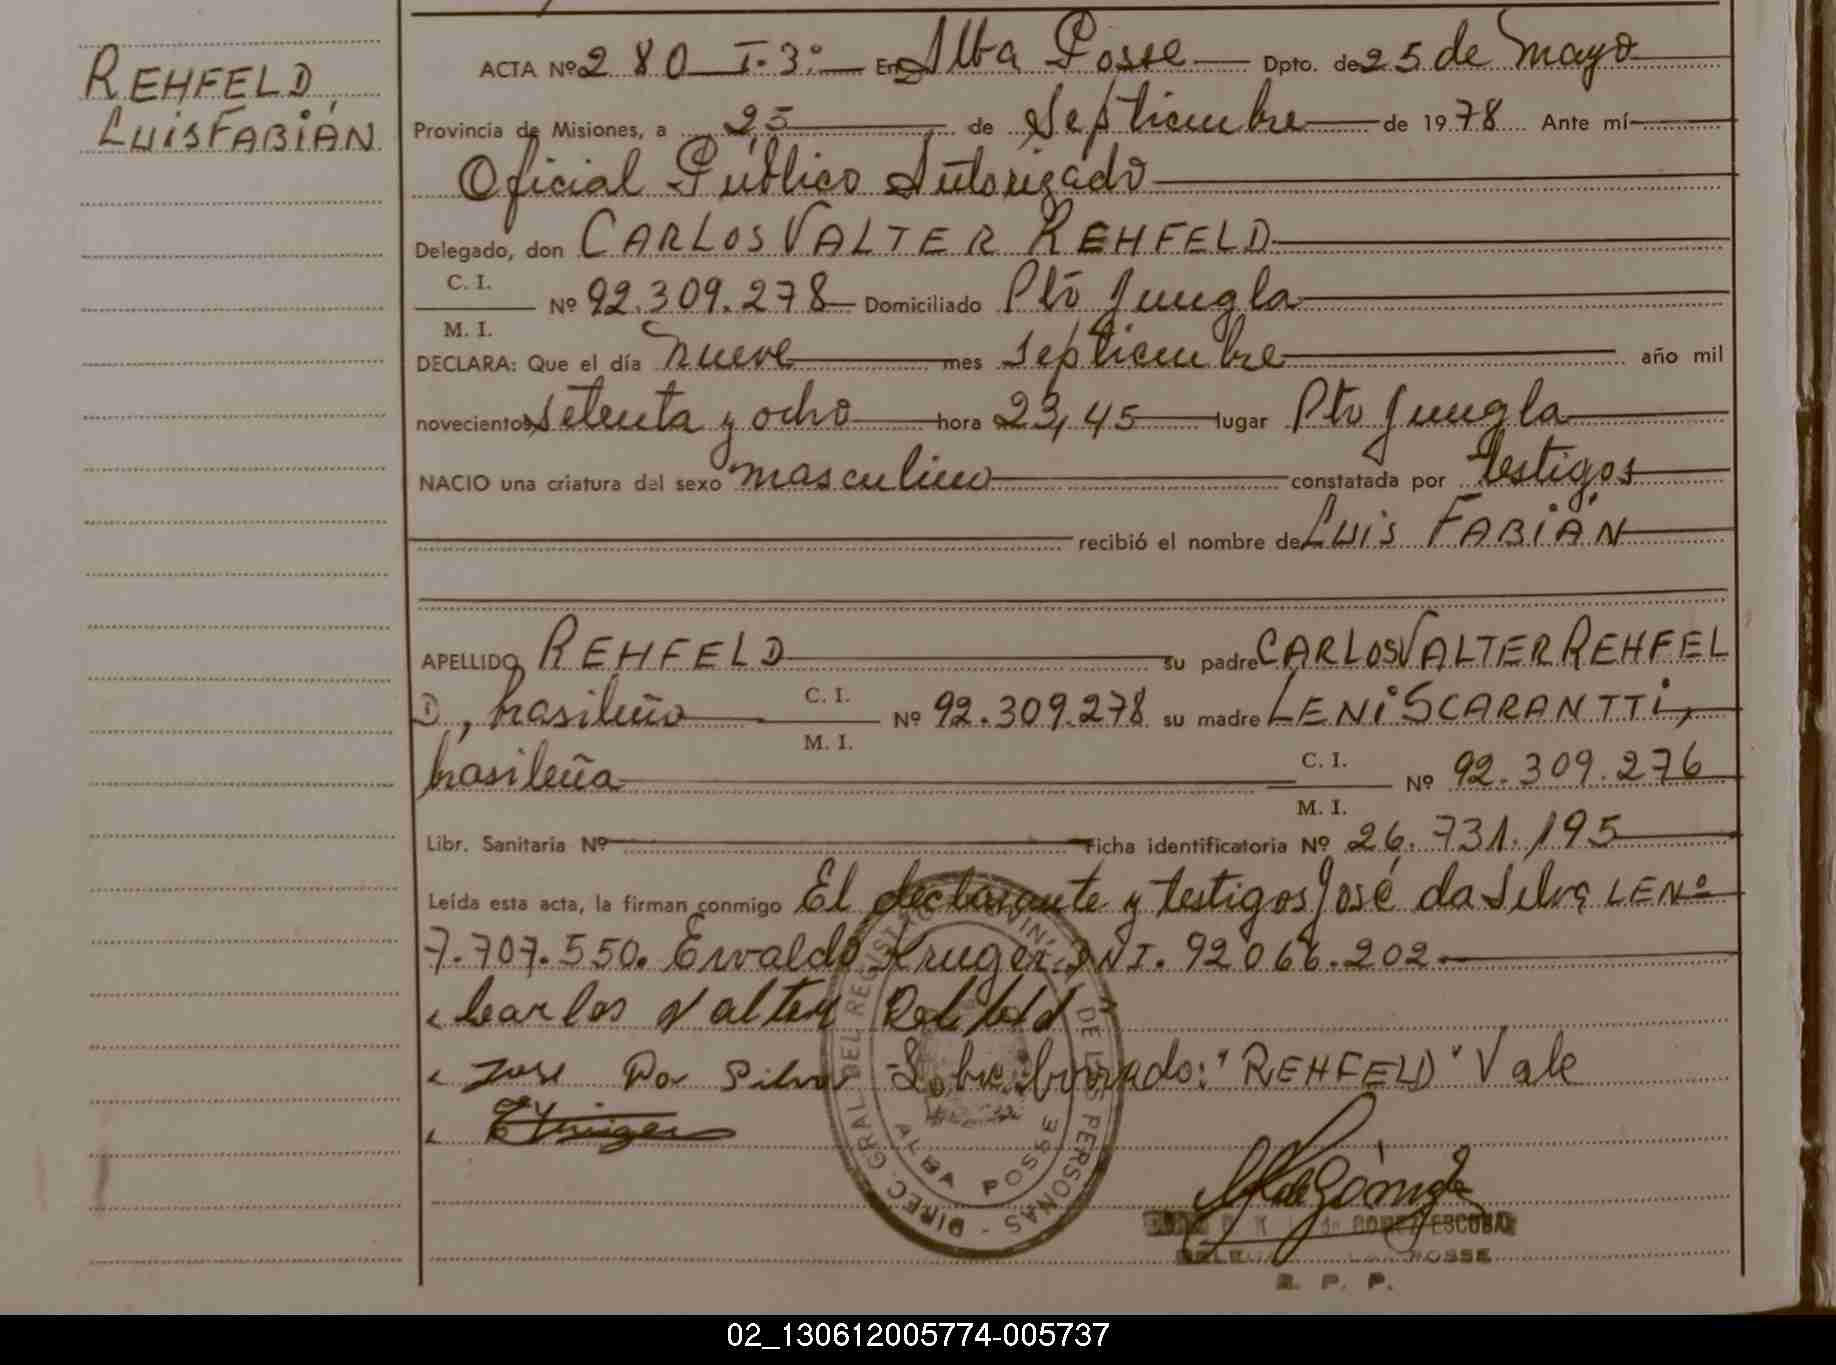 REHFELD,
LUIS FABIÁN
ACTA Nº 280 T. 3º En Alba Posse Dpto. de 25 de Mayo
Provincia de Misiones, a 25 de Septiembre de 1978 Ante mí
Oficial Público Autorizado
Delegado, don CARLOS VALTER REHFELD
C. I.
Nº 92.309.278 Domiciliado Pto Jungla
M. I.
DECLARA: Que el día nueve mes septiembre año mil
novecientos setenta y ocho hora 23,45 lugar Pto Jungla
NACIO una criatura del sexo masculino constatada por testigos
recibió el nombre de LUIS FABIÁN
APELLIDO REHFELD su padre CARLOS VALTER REHFEL
D, brasileño C. I. Nº 92.309.278 su madre LENI SCARANTTI,
M. I.
brasileña C. I. Nº 92.309.276
M. I.
Libr. Sanitaria Nº Ficha identificatoria Nº 26.731.195
Leída esta acta, la firman conmigo El declarante y testigos José da Silva, LE Nº
7.707.550. Ervaldo Kruger DNI. 92066.202
Carlos Valter Rehfeld
Jose Da Silva Sobre borrado: "REHFELD" Vale
EKruger
DIREC. GRAL. DEL REGISTRO DE LAS PERSONAS
ALBA POSSE
de GOMEZ ESCOBAR
POSSE
R. P. P.
02_130612005774-005737